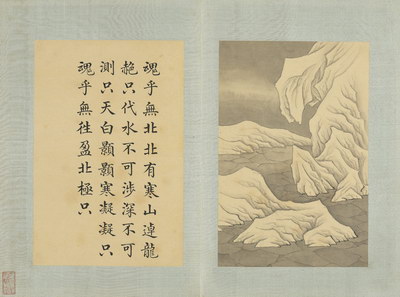 魂乎無北北有寒山逴龍
赩只代水不可涉深不可
測只天白顥顥寒凝凝只
魂乎無往盈北極只